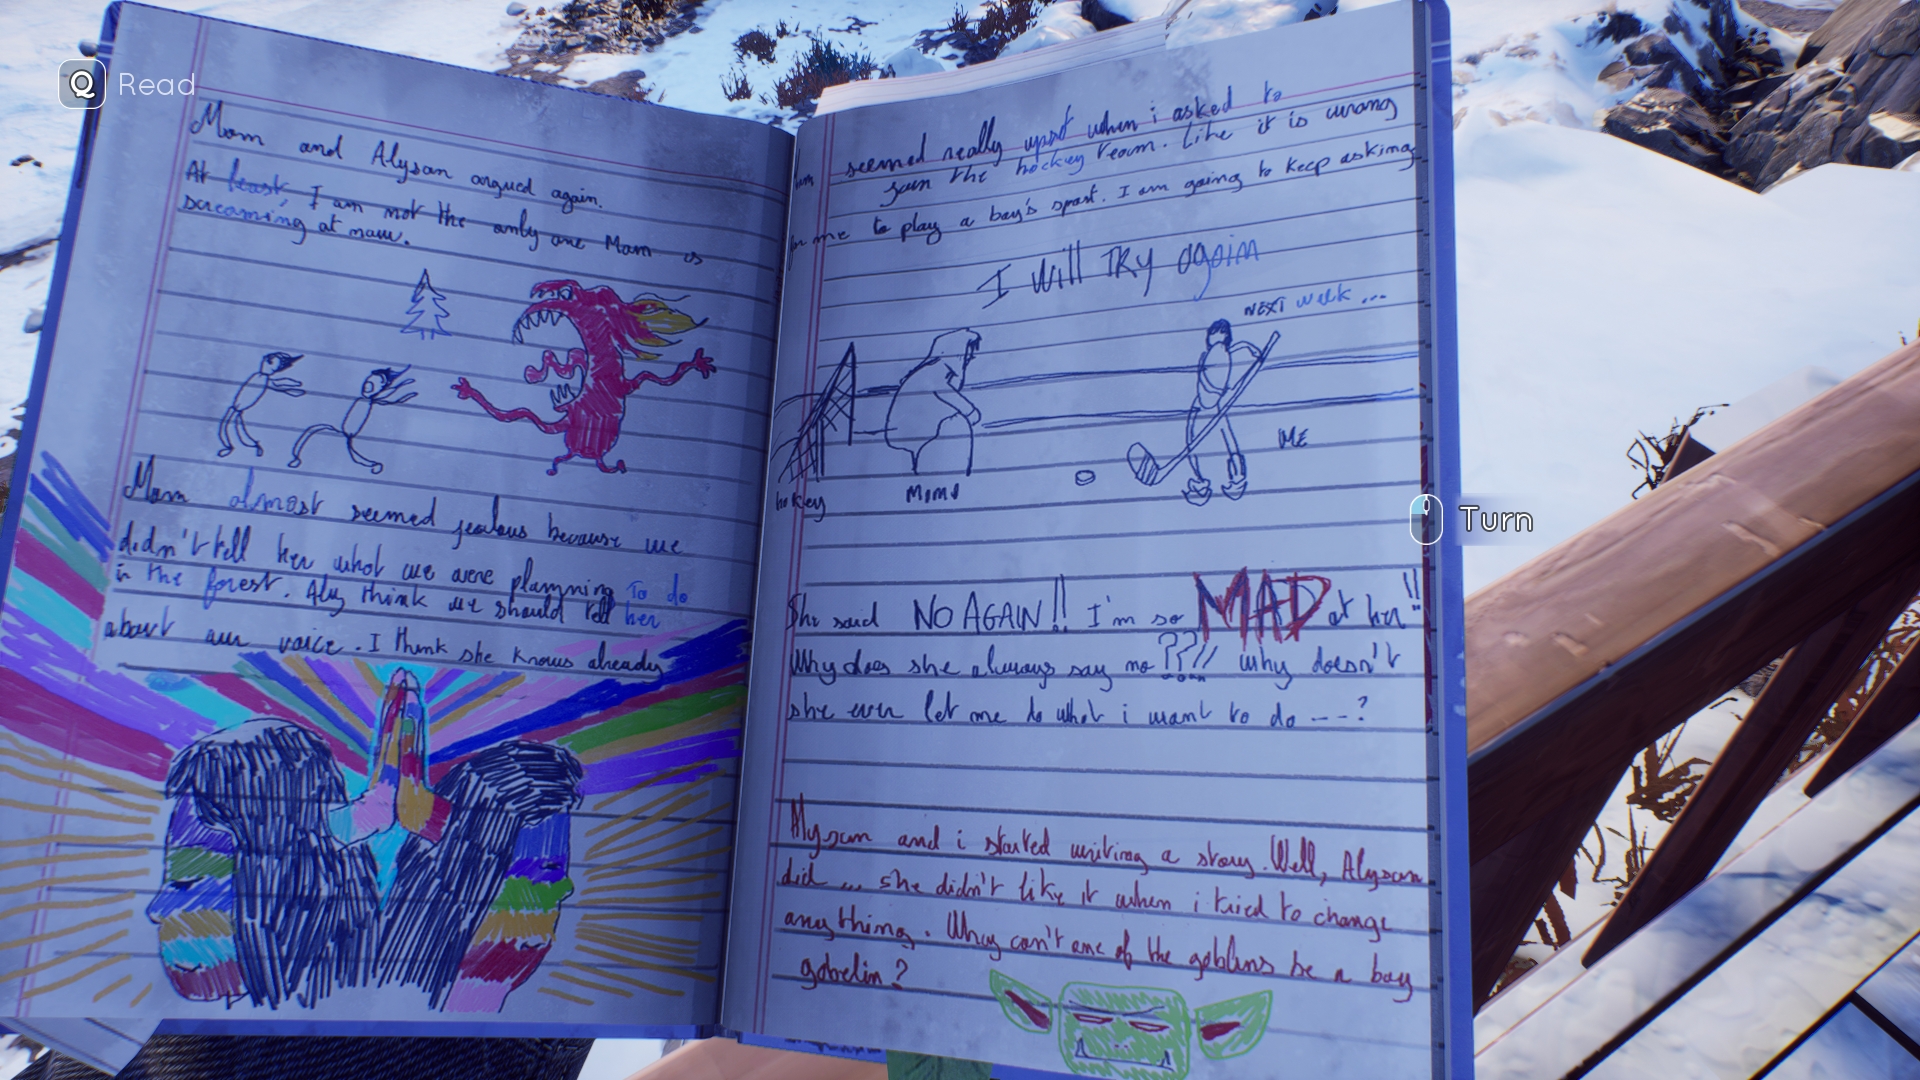 Q Read
Mom and Alyson argued again.
At least, I am not the only one Mom is
screaming at now.
Mom almost seemed jealous because we
didn't tell her what we were planning to do
in the forest. Aly think we should tell her
about our voice. I think she knows already
seemed really upset when i asked to
join the hockey team. Like it is wrong
for me to play a boy's sport. I am going to keep asking
I will TRY again
NEXT week ...
ME
hockey
Mom
She said NO AGAIN!! I'm so MAD at her!!
Why does she always say no??!! why doesn't
she ever let me do what i want to do --- ?
Alyson and i started writing a story. Well, Alyson
did ... she didn't like it when i tried to change
anything. Why can't one of the goblins be a boy
gobelin?
Turn